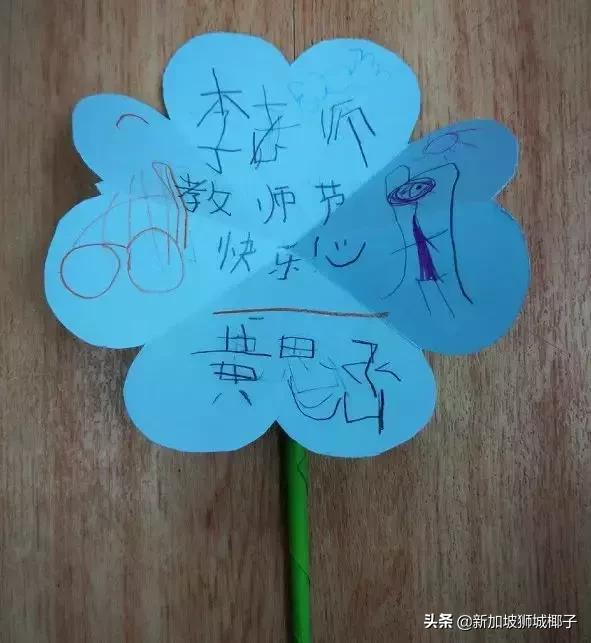 李老师
教师节
快乐心
黄思
头条 @新加坡狮城椰子